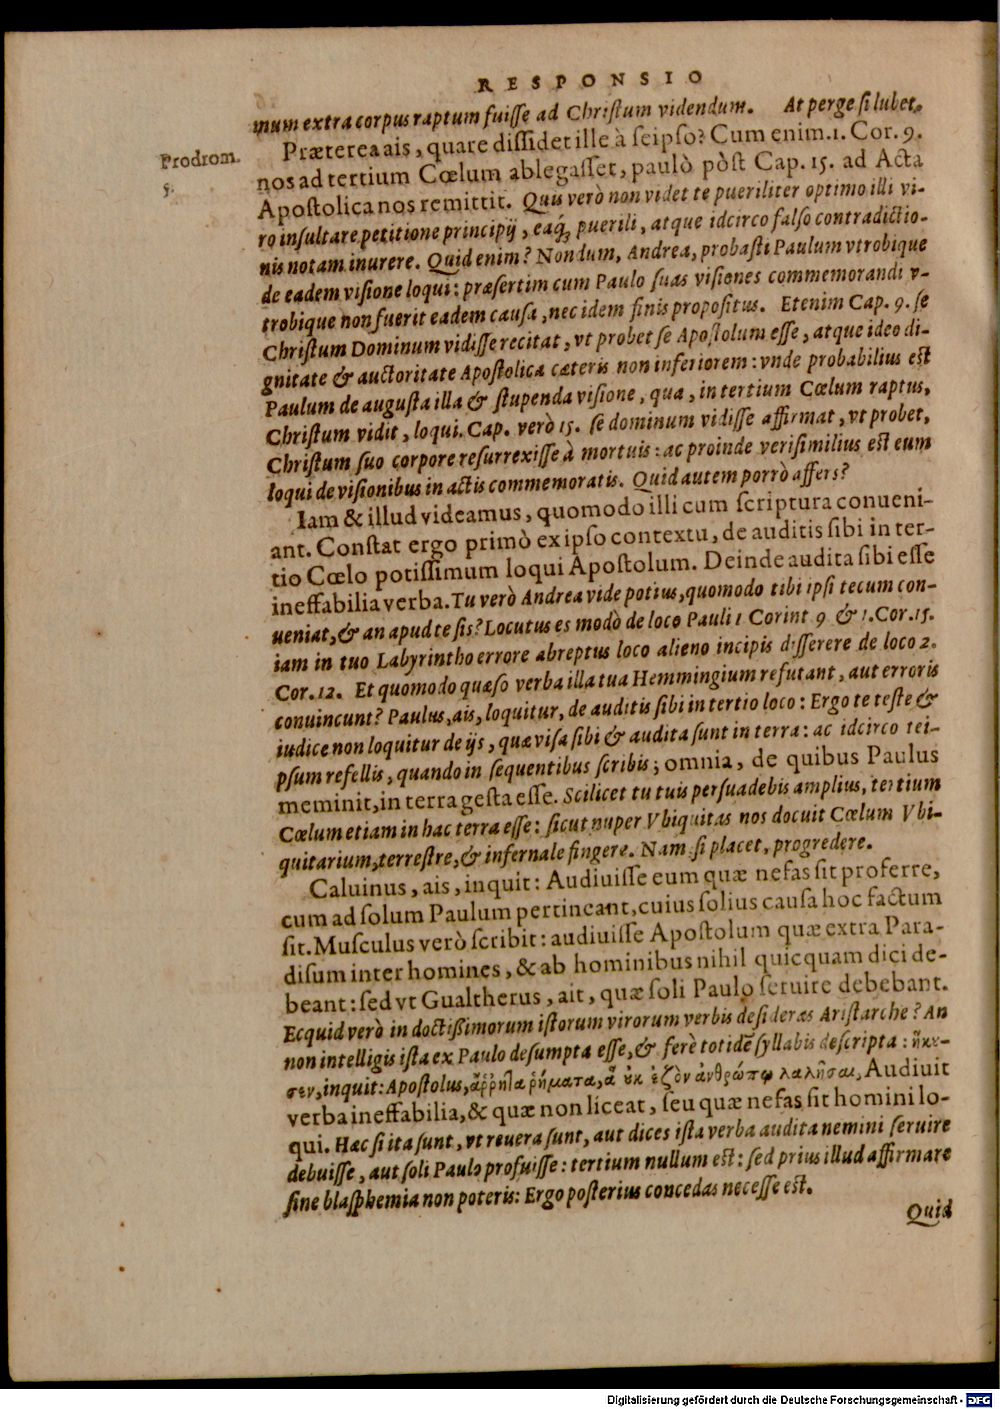 RESPONSIO
mum extra corpus raptum fuiſſe ad Chriſtum videndum. At perge ſi lubet.
Prodrom.
5.
Præterea ais, quare diſſidet ille à ſeipſo? Cum enim. 1. Cor. 9.
nos ad tertium Cœlum ablegaſſet, paulò pòſt Cap. 15. ad Acta
Apoſtolica nos remittit. Quis verò non videt te pueriliter optimo illi vi-
ro inſultare petitione principij, eaq́; puerili, atque idcirco falſo contradictio-
nis notam inurere. Quid enim? Nondum, Andrea, probaſti Paulum vtrobique
de eadem viſione loqui: præſertim cum Paulo ſuas viſiones commemorandi v-
trobique non fuerit eadem cauſa, nec idem finis propoſitus. Etenim Cap. 9. ſe
Chriſtum Dominum vidiſſe recitat, vt probet ſe Apoſtolum eſſe, atque ideo di-
gnitate & auctoritate Apoſtolica cæteris non inferiorem: vnde probabilius eſt
Paulum de auguſta illa & ſtupenda viſione, qua, in tertium Cœlum raptus,
Chriſtum vidit, loqui. Cap. verò 15. ſe dominum vidiſſe affirmat, vt probet,
Chriſtum ſuo corpore reſurrexiſſe à mortuis: ac proinde veriſimilius eſt eum
loqui de viſionibus in actis commemoratis. Quid autem porrò affers?
Iam & illud videamus, quomodo illi cum ſcriptura conueni-
ant. Conſtat ergo primò ex ipſo contextu, de auditis ſibi in ter-
tio Cœlo potiſſimum loqui Apoſtolum. Deinde audita ſibi eſſe
ineffabilia verba. Tu verò Andrea vide potius, quomodo tibi ipſi tecum con-
ueniat, & an apud te ſis? Locutus es modò de loco Pauli 1 Corint 9 & 1. Cor. 15.
iam in tuo Labyrintho errore abreptus loco alieno incipis diſſerere de loco 2.
Cor. 12. Et quomodo quæſo verba illa tua Hemmingium refutant, aut erroris
conuincunt? Paulus, ais, loquitur, de auditis ſibi in tertio loco: Ergo te teſte &
iudice non loquitur de ijs, quæ viſa ſibi & audita ſunt in terra: ac idcirco tei-
pſum refellis, quando in ſequentibus ſcribis; omnia, de quibus Paulus
meminit, in terra geſta eſſe. Scilicet tu tuis perſuadebis amplius, tertium
Cœlum etiam in hac terra eſſe: ſicut nuper Vbiquitas nos docuit Cœlum Vbi-
quitarium, terreſtre, & infernale fingere. Nam ſi placet, progredere.
Caluinus, ais, inquit: Audiuiſſe eum quæ nefas ſit proferre,
cum ad ſolum Paulum pertineant, cuius ſolius cauſa hoc factum
ſit. Muſculus verò ſcribit: audiuiſſe Apoſtolum quæ extra Para-
diſum inter homines, & ab hominibus nihil quicquam dici de-
beant: ſed vt Gualtherus, ait, quæ ſoli Paulo ſeruire debebant.
Ecquid verò in doctißimorum iſtorum virorum verbis deſideras Ariſtarche? An
non intelligis iſta ex Paulo deſumpta eſſe, & ferè totidē ſyllabis deſcripta: ἤκυ-
σεν, inquit: Apoſtolus, ἄῤῥηλα ῥήματα, ἃ ὐκ ἐξὸν ἀνθρώπῳ λαλῆσαι, Audiuit
verba ineffabilia, & quæ non liceat, ſeu quæ nefas ſit homini lo-
qui. Hæc ſi ita ſunt, vt reuera ſunt, aut dices iſta verba audita nemini ſeruire
debuiſſe, aut ſoli Paulo profuiſſe: tertium nullum eſt: ſed prius illud affirmare
ſine blaſphemia non poteris: Ergo poſterius concedas neceſſe eſt.
Quid
Digitalisierung gefördert durch die Deutsche Forschungsgemeinschaft - DFG